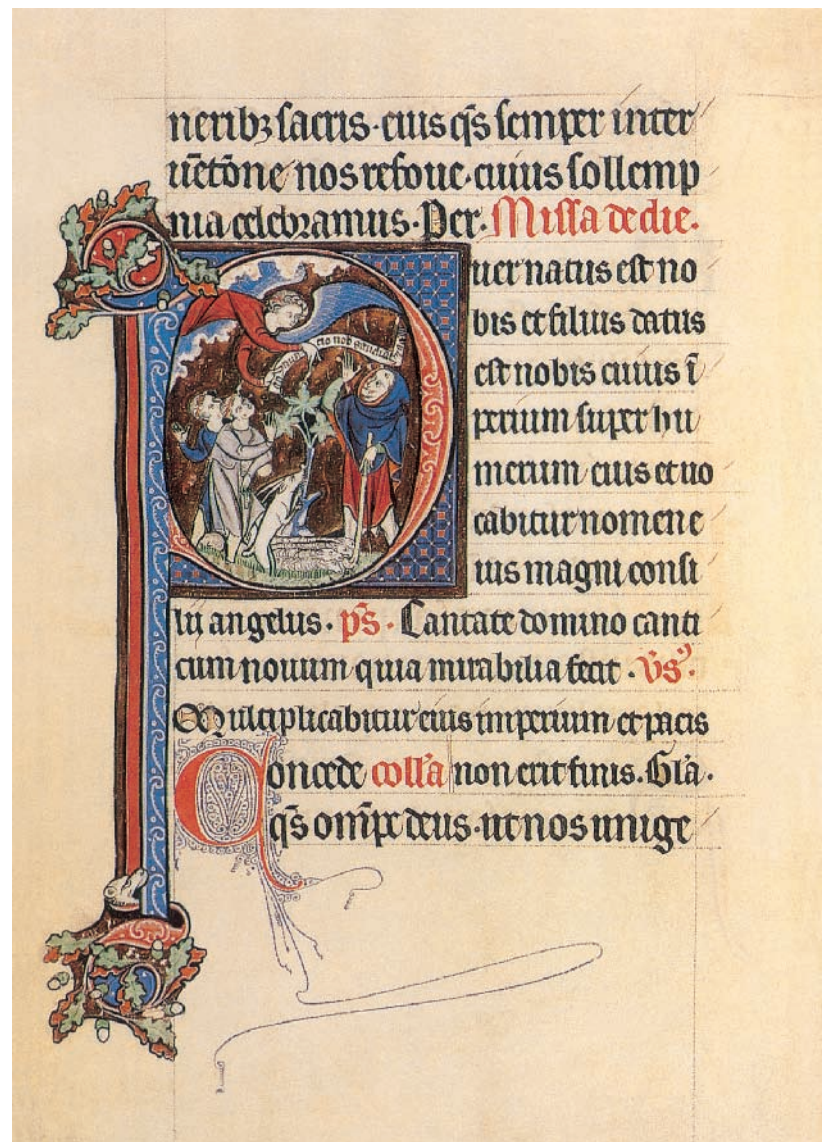 neribꝫ sacris·eius q̄s semper inter
uētōne nos refoue·cuius sollemp
nia celebramus·Per·Missa de die.
P uer natus est no
bis et filius datus
est nobis cuius ī
perium super hu
merum eius et uo
cabitur nomen e
ius magni consi
lii angelus·p̄s·Cantate domino canti
cum nouum quia mirabilia fecit·v̄s·
Multiplicabitur eius imperium et pacis
Concede coll'a non erit finis.Gl'a·
q̄s om̄pe deus·ut nos unige